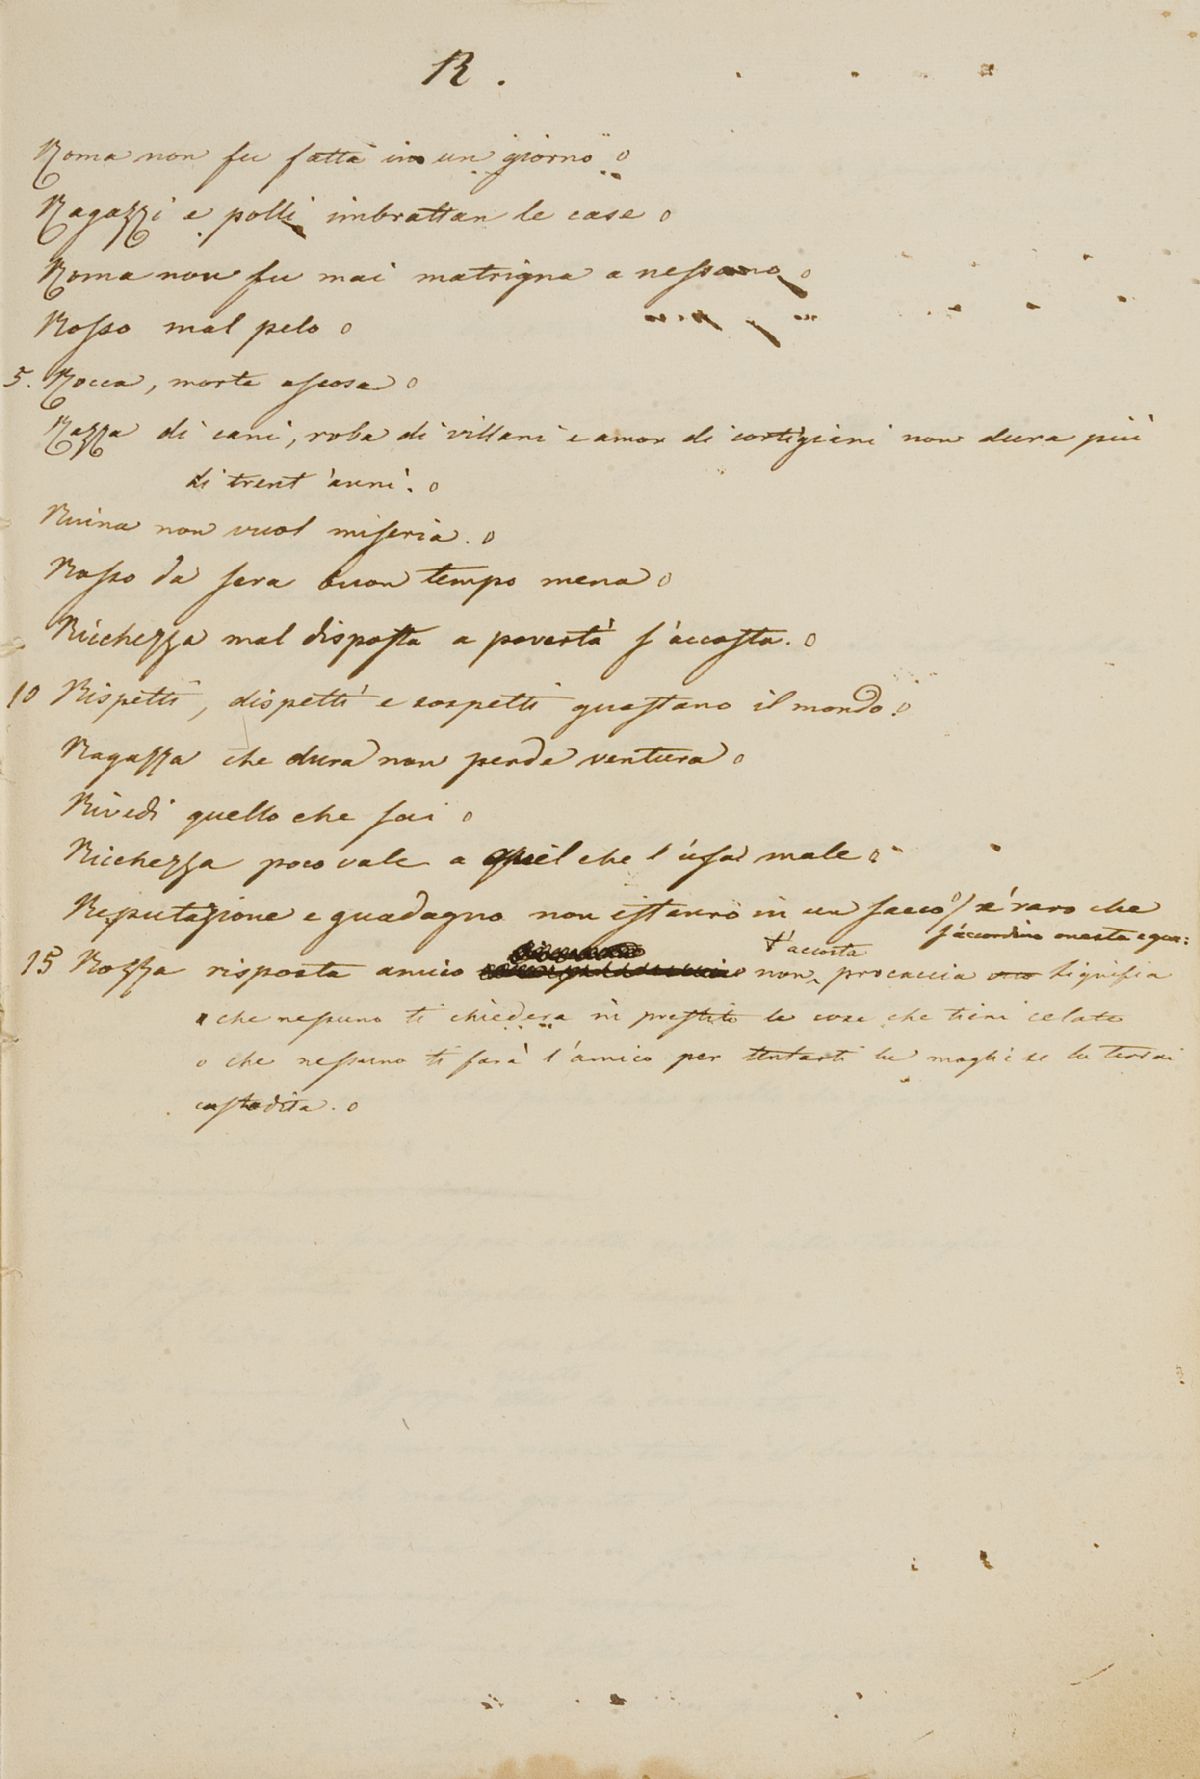 R.
Roma non fu fatta in un giorno o
Ragazzi e polli imbrattan le case o
Roma non fu mai matrigna a nessuno o
Rosso mal pelo o
5. Rocca, morte ascosa o
Razza di cani, roba di villani e amor di cortigiani non dura più
di trent'anni. o
Ruina non vuol miseria. o
Rosso da sera buon tempo mena o
Ricchezza mal disposta a povertà s'accosta. o
10 Rispetti, dispetti e sospetti guastano il mondo. o
Ragazza che dura non perde ventura o
Rivedi quello che fai o
Ricchezza poco vale a quel che l'usa male o
Reputazione e guadagno non istanno in un sacco o/ è raro che
s'accordino onestà e gua:
t'accosta
15 Rozza risposta amico non procaccia Significa
che nessuno ti chiederà in prestito le cose che tieni celate
o che nessuno ti farà l'amico per tentarti la moglie se la terrai
custodita. o